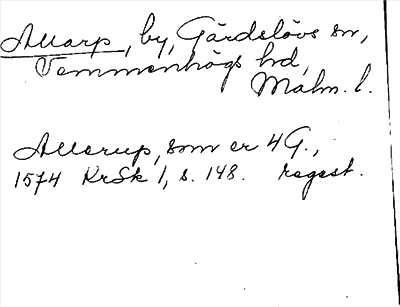 Allarp, by, Gärdslövs sn,
Vemmenhögs hd,
Malm. l.
Allerup, som er 4 G.,
1574 KrSk 1, s. 148. regest.